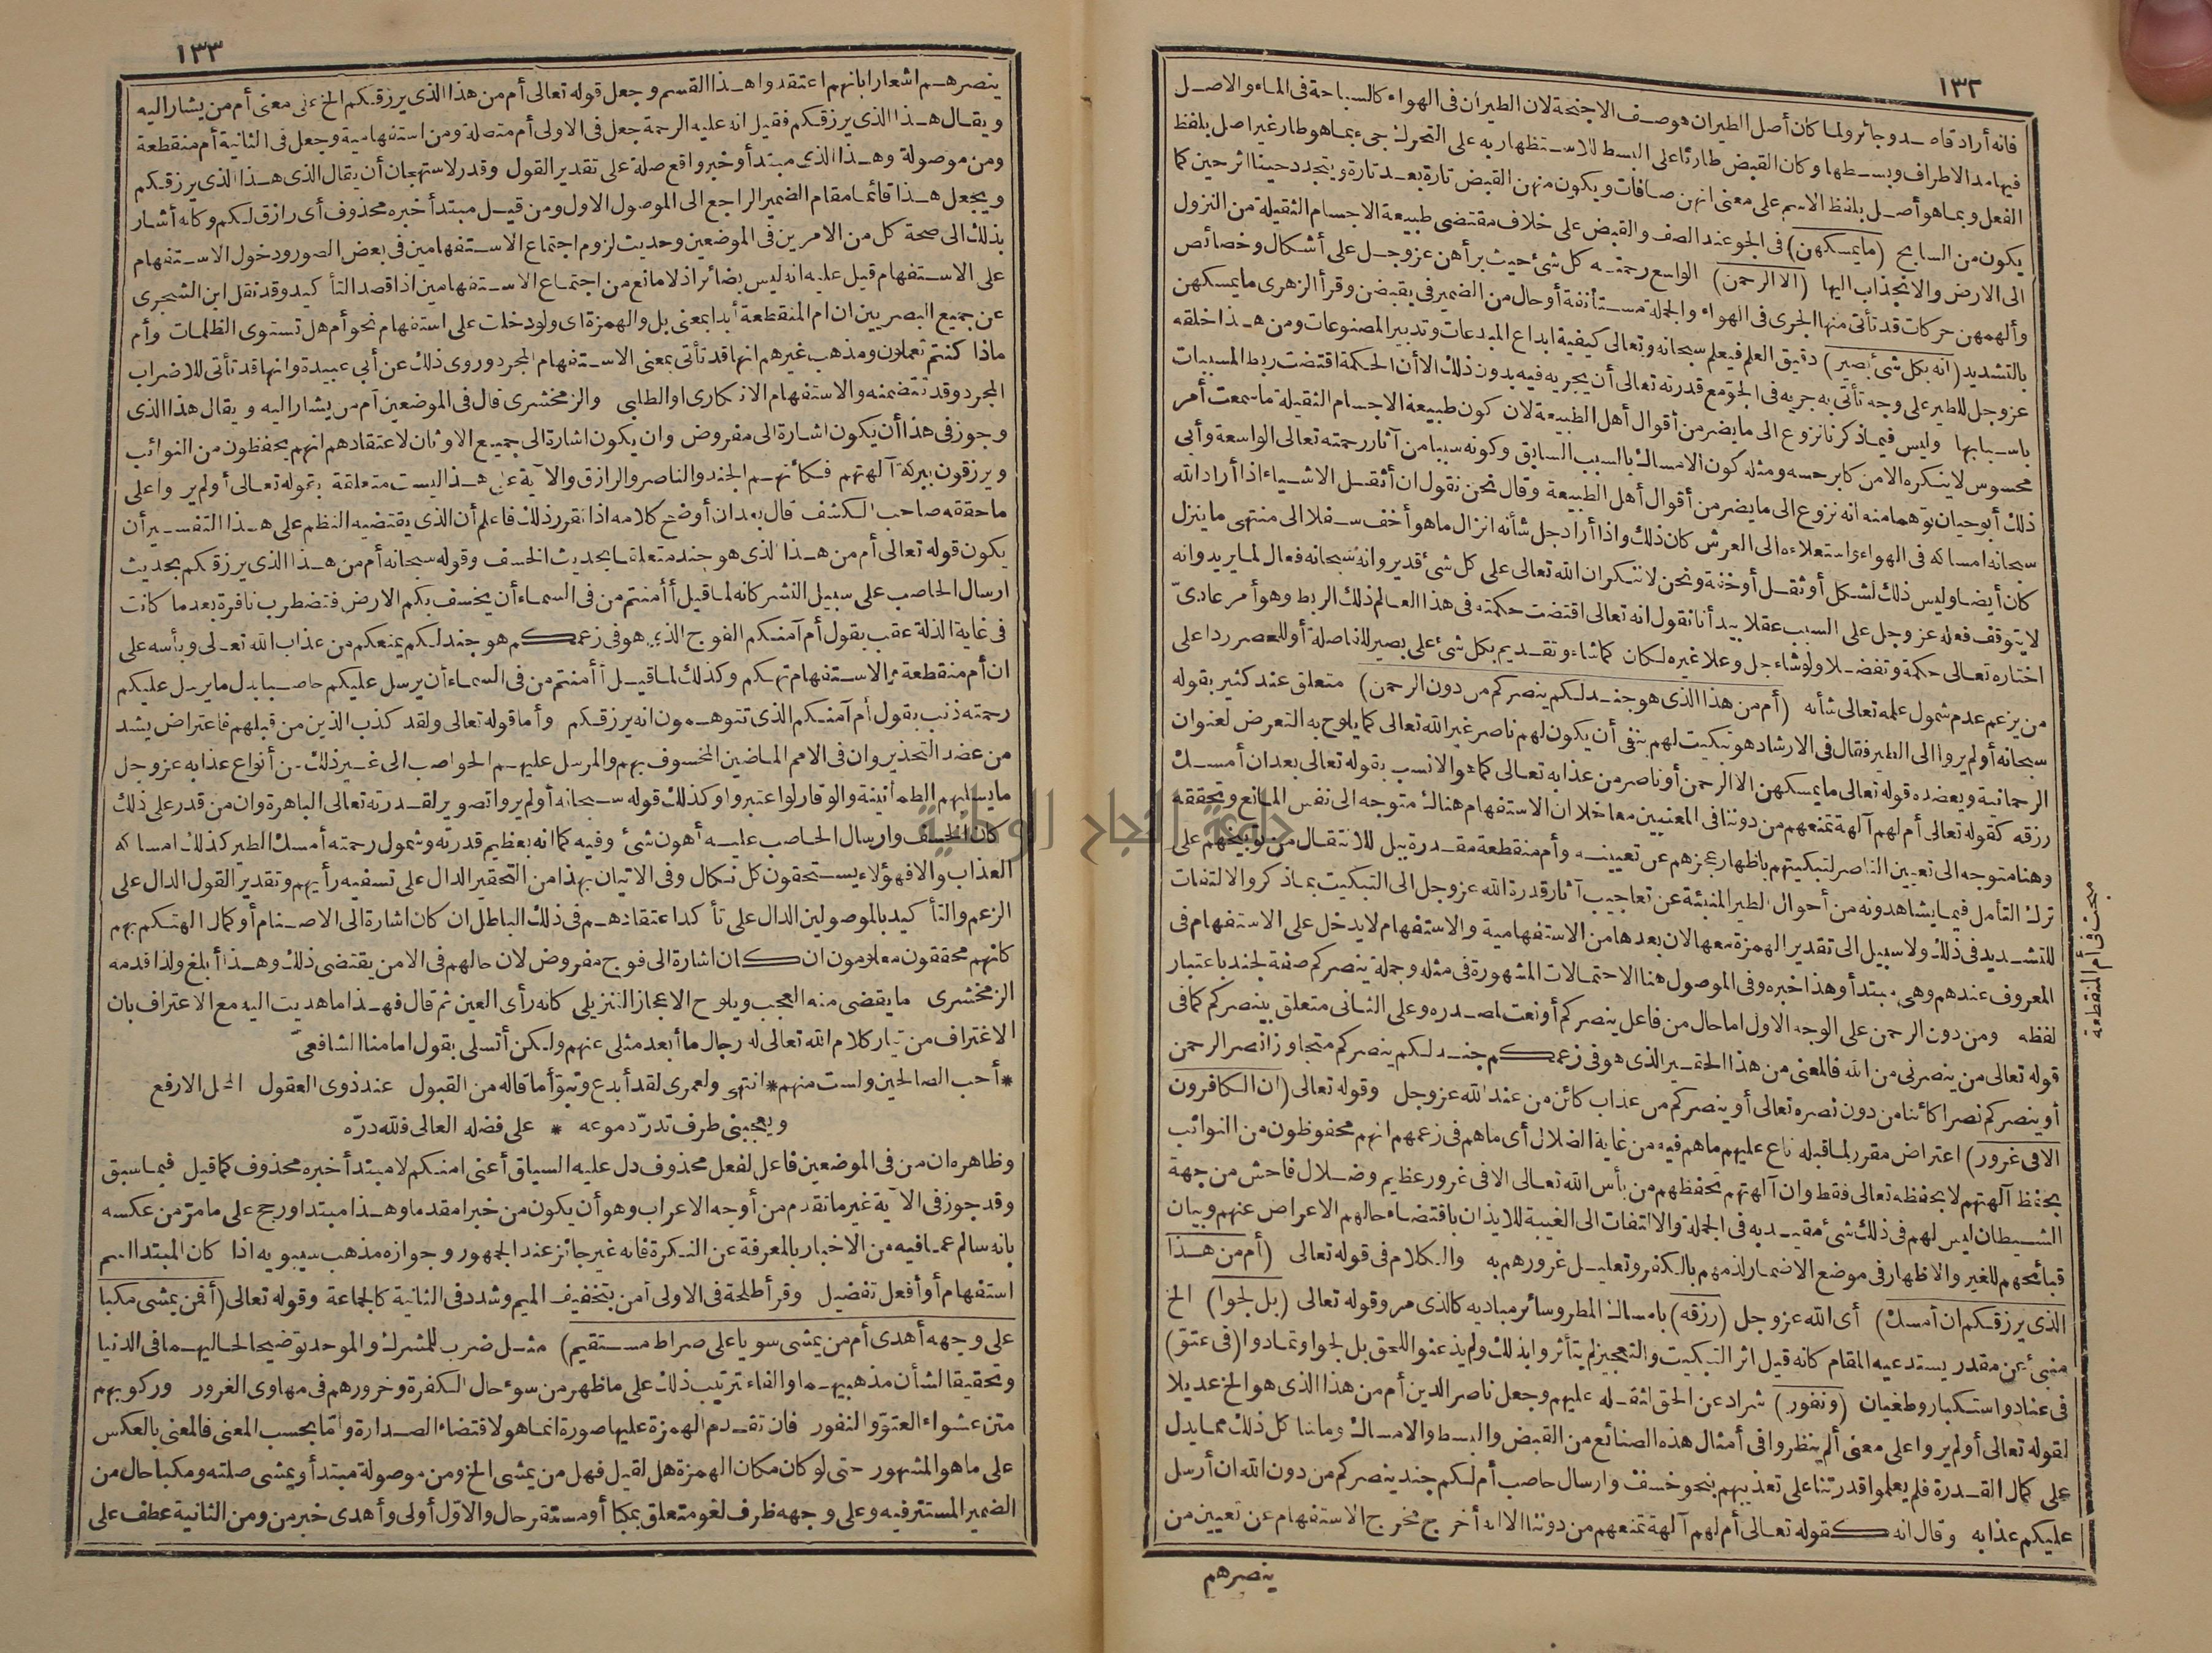 ١٣٢
فانه أراد قاصد وجائر ولما كان أصل الطيران هو صف الاجنحة لان الطيران فى الهواء كالسباحة فى الماء والاصل
فيها مد الاطراف وبسطها وكان القبض طارئا على البسط للاستظهار به على التحرك جىء بما هو طار غير اصل بلفظ
الفعل وبما هو أصل بلفظ الاسم على معنى انهن صافات ويكون منهن القبض تارة بعد تارة ويتجدد حينا اثر حين كما
يكون من السابح (ما يمسكهن) فى الجو عند الصف والقبض على خلاف مقتضى طبيعة الاجسام الثقيلة من النزول
الى الارض والانجذاب اليها (الا الرحمن) الواسع رحمته كل شئ حيث برأهن عز وجل على أشكال وخصائص
وألهمهن حركات قد تأتى منها الجرى فى الهواء والجملة مستأنفة أو حال من الضمير فى يقبضن وقرأ الزهرى ما يمسكهن
بالتشديد (انه بكل شئ بصير) دقيق العلم فيعلم سبحانه وتعالى كيفية ابداع المبدعات وتدبير المصنوعات ومن هذا خلقه
عز وجل للطير على وجه تأتى به جريه فى الجو مع قدرته تعالى أن يجريه فيه بدون ذلك الا أن الحكمة اقتضت ربط المسببات
باسبابها وليس فيما ذكرنا نزوع الى ما يضر من أقوال أهل الطبيعة لان كون طبيعة الاجسام الثقيلة ما سمعت أمر
محسوس لا ينكره الا من كابر حسه ومثله كون الامساك بالسبب السابق وكونه سببا من آثار رحمته تعالى الواسعة وأبى
ذلك أبو حيان توهما منه انه نزوع الى ما يضر من أقوال أهل الطبيعة وقال نحن نقول ان أثقل الاشياء اذا أراد الله
سبحانه امساكه فى الهواء واستعلاءه الى العرش كان ذلك واذا أراد جل شأنه انزال ما هو أخف سفلا الى منتهى ما ينزل
كان أيضا وليس ذلك لشكل أو ثقل أو خفة ونحن لا ننكر ان الله تعالى على كل شئ قدير وانه سبحانه فعال لما يريد وانه
لا يتوقف فعله عز وجل على السبب عقلا بيد أنا نقول انه تعالى اقتضت حكمته فى هذا العالم ذلك الربط وهو أمر عادىّ
اختاره تعالى حكمة وتفضلا ولو شاء جل وعلا غيره لكان كما شاء وتقديم بكل شئ على بصير للفاصلة أو للحصر ردا على
من يزعم عدم شمول علمه تعالى شأنه (أم من هذا الذى هو جند لكم ينصركم من دون الرحمن) متعلق عند كثير بقوله
سبحانه أولم يروا الى الطير فقال فى الارشاد هو تبكيت لهم بنفى أن يكون لهم ناصر غير الله تعالى كما يلوح به التعرض لعنوان
الرحمانية ويعضده قوله تعالى ما يمسكهن الا الرحمن أو ناصر من عذابه تعالى كما هو الانسب بقوله تعالى بعد ان أمسك
رزقه كقوله تعالى أم لهم آلهة تمنعهم من دوننا فى المعنيين معا خلا ان الاستفهام هناك متوجه الى نفس المانع وتحققه
وهنا متوجه الى تعيين الناصر لتبكيتهم باظهار عجزهم عن تعيينه وأم منقطعة مقدرة ببل للانتقال من توبيخهم على
ترك التأمل فيما يشاهدونه من أحوال الطير المنبئة عن تعاجيب آثار قدرة الله عز وجل الى التبكيت بما ذكر والالتفات
للتشديد فى ذلك ولا سبيل الى تقدير الهمزة معها لان بعدها من الاستفهامية والاستفهام لا يدخل على الاستفهام فى
المعروف عندهم وهى مبتدأ وهذا خبره وفى الموصول هنا الاحتمالات المشهورة فى مثله وجملة ينصركم صفة لجند باعتبار
لفظه ومن دون الرحمن على الوجه الاول اما حال من فاعل ينصركم أو نعت لمصدره وعلى الثانى متعلق بينصركم كما فى
قوله تعالى من ينصرنى من الله فالمعنى من هذا الحقير الذى هو فى زعمكم جند لكم ينصركم متجاوزا نصر الرحمن
أو ينصركم نصرا كائنا من دون نصره تعالى أو ينصركم من عذاب كائن من عند الله عز وجل وقوله تعالى (ان الكافرون
الا فى غرور) اعتراض مقرر لما قبله ناع عليهم ما هم فيه من غاية الضلال أى ما هم فى زعمهم انهم محفوظون من النوائب
بحفظ آلهتهم لا بحفظه تعالى فقط وان آلهتهم تحفظهم من بأس الله تعالى الا فى غرور عظيم وضلال فاحش من جهة
الشيطان ليس لهم فى ذلك شئ مقيد به فى الجملة والالتفات الى الغيبة للايذان باقتضاء حالهم الاعراض عنهم وبيان
قبائحهم للغير والاظهار فى موضع الاضمار لذمهم بالكفر وتعليل غرورهم به والكلام فى قوله تعالى (أم من هذا
الذى يرزقكم ان أمسك) أى الله عز وجل (رزقه) بامساك المطر وسائر مباديه كالذى مر وقوله تعالى (بل لجوا) الخ
منبئ عن مقدر يستدعيه المقام كانه قيل اثر التبكيت والتعجيز لم يتأثروا بذلك ولم يذعنوا للحق بل لجوا وتمادوا (فى عتو)
فى عناد واستكبار وطغيان (ونفور) شراد عن الحق لثقله عليهم وجعل ناصر الدين أم من هذا الذى هو الخ عديلا
لقوله تعالى أولم يروا على معنى ألم ينظروا فى أمثال هذه الصنائع من القبض والبسط والامساك وما شا كل ذلك مما يدل
على كمال القدرة فلم يعلموا قدرتنا على تعذيبهم بنحو خسف وارسال حاصب أم لكم جند ينصركم من دون الله ان أرسل
عليكم عذابه وقال انه كقوله تعالى أم لهم آلهة تمنعهم من دوننا الا انه أخرج مخرج الاستفهام عن تعيين من
ينصرهم
مبحث فى أم المنقطعة
١٣٣
ينصرهم اشعارا بانهم اعتقدوا هذا القسم وجعل قوله تعالى أم من هذا الذى يرزقكم الخ على معنى أم من يشار اليه
ويقال هذا الذى يرزقكم فقيل انه عليه الرحمة جعل فى الاولى أم متصلة ومن استفهامية وجعل فى الثانية أم منقطعة
ومن موصولة وهذا الذى مبتدأ وخبر واقع صلة على تقدير القول وقدر لاستهجان أن يقال الذى هذا الذى يرزقكم
ويجعل هذا قائما مقام الضمير الراجع الى الموصول الاول ومن قيل مبتدأ خبره محذوف أى رازق لكم وكانه أشار
بذلك الى صحة كل من الامرين فى الموضعين وحديث لزوم اجتماع الاستفهامين فى بعض الصور ودخول الاستفهام
على الاستفهام قيل عليه انه ليس بضائر اذ لا مانع من اجتماع الاستفهامين اذا قصد التأكيد وقد نقل ابن الشجرى
عن جميع البصريين ان ام المنقطعة أبدا بمعنى بل والهمزة اى ولو دخلت على استفهام نحو أم هل تستوى الظلمات وأم
ماذا كنتم تعملون ومذهب غيرهم انها قد تأتى بمعنى الاستفهام المجرد وروى ذلك عن أبى عبيدة وانها قد تأتى للاضراب
المجرد وقد تتضمنه والاستفهام الانكارى او الطلبى والزمخشرى قال فى الموضعين أم من يشار اليه ويقال هذا الذى
وجوز فى هذا أن يكون اشارة الى مفروض وان يكون اشارة الى جميع الاوثان لاعتقادهم انهم يحفظون من النوائب
ويرزقون ببركة آلهتهم فكأنهم الجند والناصر والرازق والآية على هذا ليست متعلقة بقوله تعالى أولم يروا على
ما حققه صاحب الكشف قال بعد ان أوضح كلامه اذا تقرر ذلك فاعلم أن الذى يقتضيه النظم على هذا التفسير أن
يكون قوله تعالى أم من هذا الذى هو جند متعلقا بحديث الخسف وقوله سبحانه أم من هذا الذى يرزقكم بحديث
ارسال الحاصب على سبيل النشر كانه لما قيل أأمنتم من فى السماء أن يخسف بكم الارض فتضطرب نافرة بعد ما كانت
فى غاية الذلة عقب بقول أم آمنكم الفوج الذى هو فى زعمكم هو جند لكم يمنعكم من عذاب الله تعالى وبأسه على
ان أم منقطعة والاستفهام تهكم وكذلك لما قيل أأمنتم من فى السماء أن يرسل عليكم حاصبا بدل ما يرسل عليكم
رحمته ذنب بقول أم آمنكم الذى تتوهمون انه يرزقكم وأما قوله تعالى ولقد كذب الذين من قبلهم فاعتراض يشد
من عضد التحذير وان فى الامم الماضين المخسوف بهم والمرسل عليهم الحواصب الى غير ذلك من أنواع عذابه عز وجل
ما يسلبهم الطمأنينة والوقار لو اعتبروا وكذلك قوله سبحانه أولم يروا تصوير لقدرته تعالى الباهرة وان من قدر على ذلك
كان الخسف وارسال الحاصب عليه أهون شئ وفيه كما انه بعظيم قدرته وشمول رحمته أمسك الطير كذلك امساكه
العذاب والا فهؤلاء يستحقون كل نكال وفى الاتيان بهذا من التحقير الدال على تسفيه رأيهم وتقدير القول الدال على
الزعم والتأكيد بالموصولين الدال على تأكد اعتقادهم فى ذلك الباطل ان كان اشارة الى الاصنام أو كمال التهكم بهم
كانهم محققون معلومون ان كان اشارة الى فوج مفروض لان حالهم فى الامن يقتضى ذلك وهذا أبلغ ولذا قدمه
الزمخشرى ما يقضى منه العجب ويلوح الاعجاز التنزيلى كانه رأى العين ثم قال فهذا ما هديت اليه مع الاعتراف بان
الاغتراف من تيار كلام الله تعالى له رجال ما أبعد مثلى عنهم ولكن أتسلى بقول امامنا الشافعىّ
*أحب الصالحين ولست منهم* انتهى ولعمرى لقد أبدع وتبوّأ ما قاله من القبول عند ذوى العقول المحل الارفع
ويعجبنى طرف تدرّ دموعه * على فضله العالى فلله درّه
وظاهره ان من فى الموضعين فاعل لفعل محذوف دل عليه السياق أعنى امنكم لا مبتدأ خبره محذوف كما قيل فيما سبق
وقد جوز فى الآية غير ما تقدم من أوجه الاعراب وهو أن يكون من خبرا مقدما وهذا مبتدا ورجح على ما مرّ من عكسه
بانه سالم عما فيه من الاخبار بالمعرفة عن النكرة فانه غير جائز عند الجمهور وجوازه مذهب سيبويه اذا كان المبتدا اسم
استفهام أو أفعل تفضيل وقرأ طلحة فى الاولى أمن بتخفيف الميم وشدد فى الثانية كالجماعة وقوله تعالى (أفمن يمشى مكبا
على وجهه أهدى أم من يمشى سويا على صراط مستقيم) مثل ضرب للمشرك والموحد توضيحا لحاليهما فى الدنيا
وتحقيقا لشأن مذهبيهما والفاء لترتيب ذلك على ما ظهر من سوء حال الكفرة وخرورهم فى مهاوى الغرور وركوبهم
متن عشواء العتوّ والنفور فان تقدم الهمزة عليها صورة انما هو لاقتضاء الصدارة وامّا بحسب المعنى فالمعنى بالعكس
على ما هو المشهور حتى لو كان مكان الهمزة هل لقيل فهل من يمشى الخ ومن موصولة مبتدأ ويمشى صلته ومكبا حال من
الضمير المستتر فيه وعلى وجهه ظرف لغو متعلق بمكبا أو مستقر حال والاوّل أولى وأهدى خبر من ومن الثانية عطف على
جامعة النجاح الوطنية